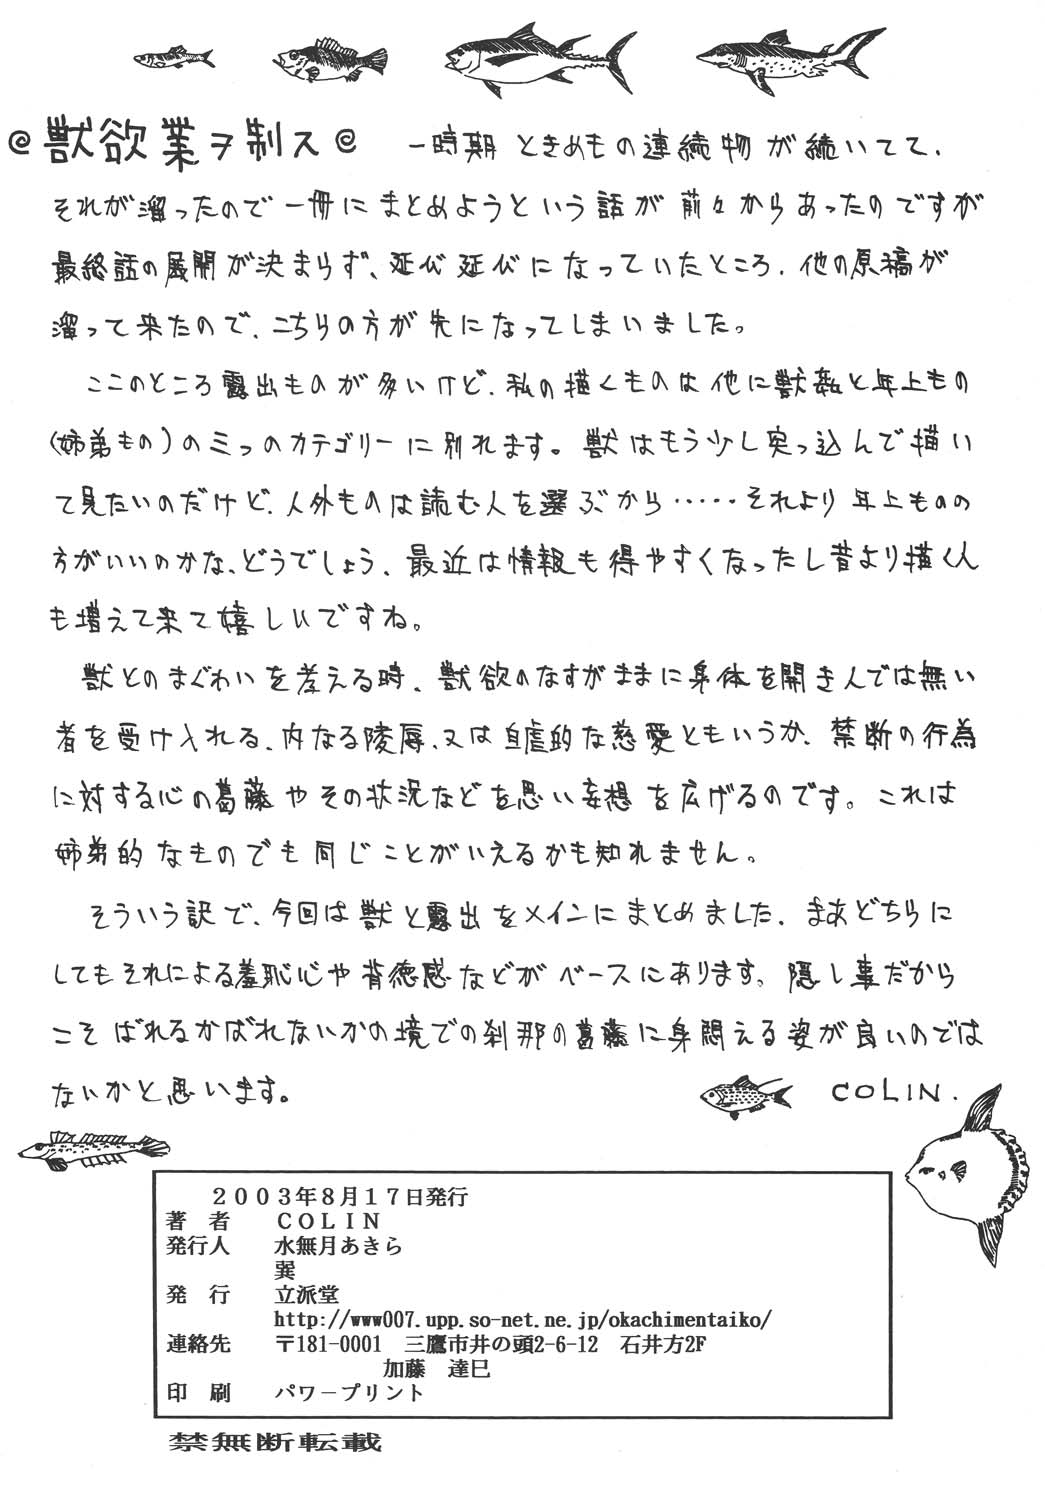 @獣欲業ヲ制ス@　一時期ときめもの連続物が続いてて、
それが溜ったので一冊にまとめようという話が前々からあったのですが
最終話の展開が決まらず、延び延びになっていたところ、他の原稿が
溜って来たので、こちらの方が先になってしまいました。
ここのところ露出ものが多いけど、私の描くものは他に獣姦と年上もの
(姉弟もの)の三つのカテゴリーに別れます。獣はもう少し突っ込んで描い
て見たいのだけど、人外ものは読む人を選ぶから・・・・・それより年上ものの
方がいいのかな、どうでしょう、最近は情報も得やすくなったし昔より描く人
も増えて来て嬉しいですね。
獣とのまぐわいを考える時、獣欲のなすがままに身体を開き人では無い
者を受け入れる、内なる陵辱、又は自虐的な慈愛ともいうか、禁断の行為
に対する心の葛藤やその状況などを思い妄想を広げるのです。これは
姉弟的なものでも同じことがいえるかも知れません。
そういう訳で、今回は獣と露出をメインにまとめました、まあどちらに
してもそれによる羞恥心や背徳感などがベースにあります。隠し事だから
こそばれるかばれないかの境での刹那の葛藤に身悶える姿が良いのでは
ないかと思います。
COLIN.
２００３年８月１７日発行
著　者　　ＣＯＬＩＮ
発行人　　水無月あきら
巽
発　行　　立派堂
http://www007.upp.so-net.ne.jp/okachimentaiko/
連絡先　　〒181-0001　三鷹市井の頭2-6-12　石井方2F
加藤　達巳
印　刷　　パワープリント
禁無断転載